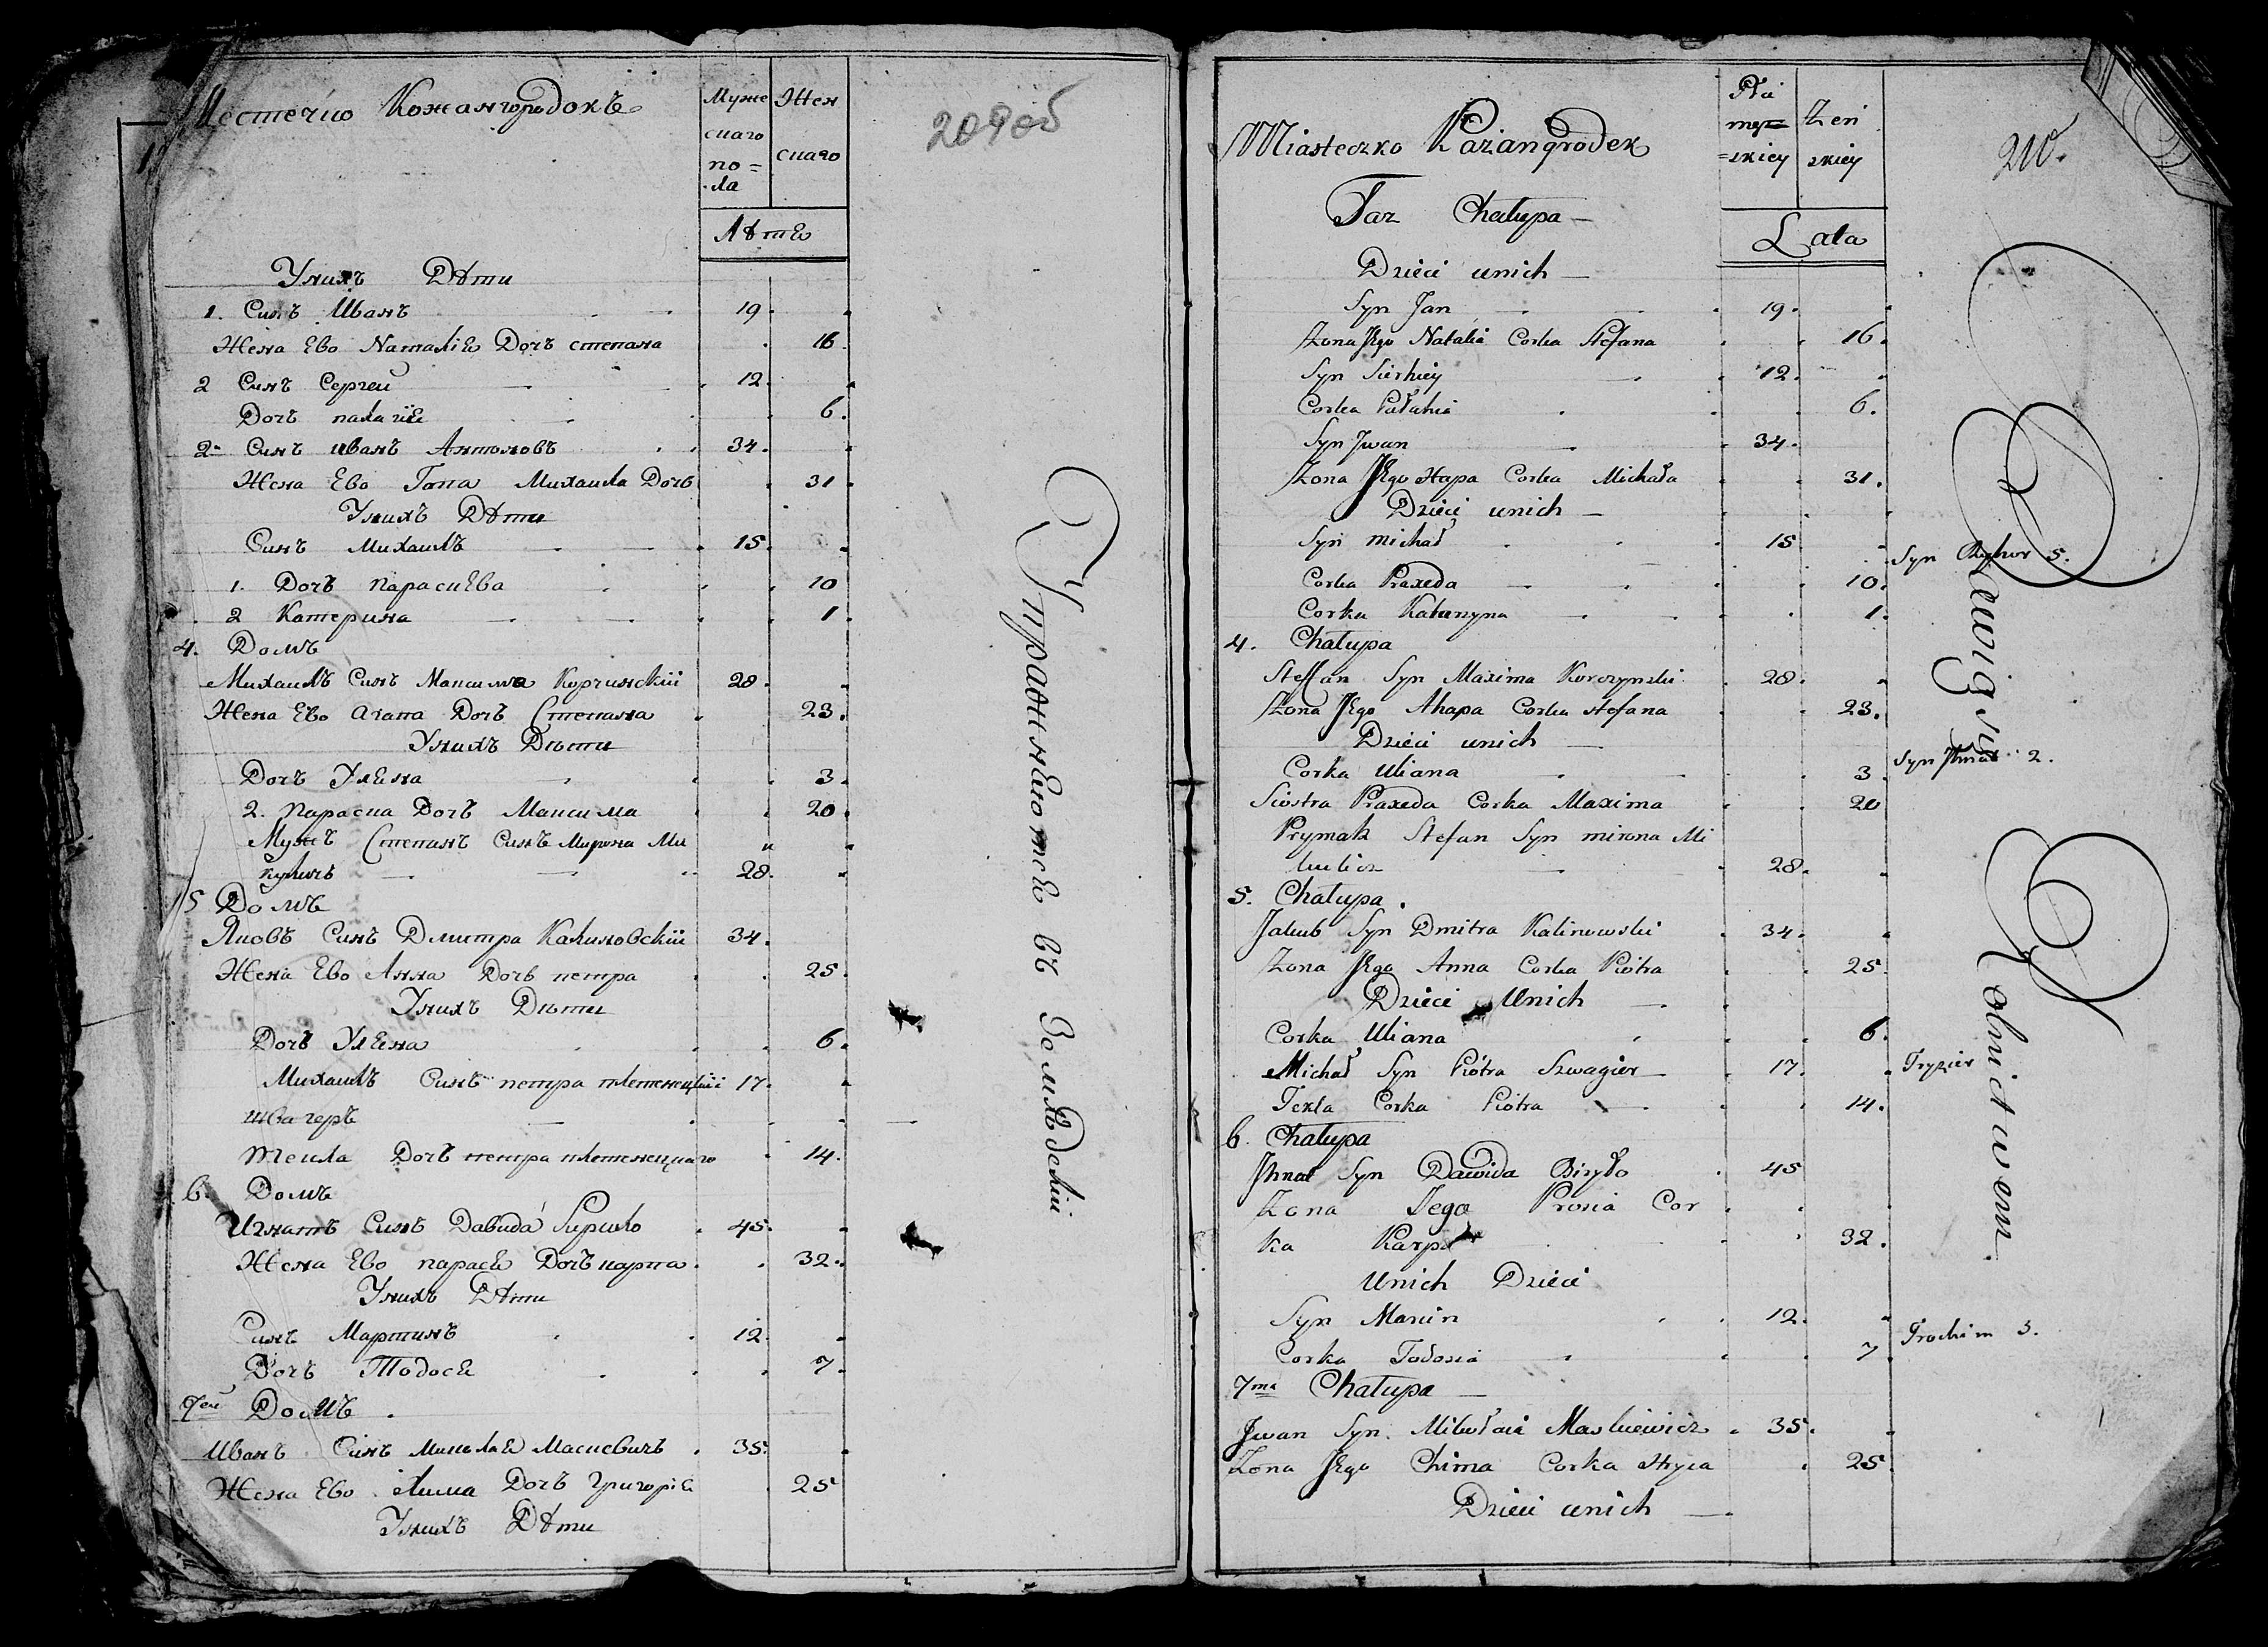 Местечко Кожангородокъ
Муже
скаго
по=
ла
Жен
скаго
Лѣтъ
209об
Унихъ Дѣти
1. Синъ Иванъ 19
Жена Ево Наталiя Дочъ степана 16
2 Синъ Сергей 12
Дочъ палагiя 6
2 Синъ иванъ Антоновъ 34
Жена Ево Гапа Михаила Дочъ 31
Унихъ Дѣти
Синъ Михаилъ 15
1. Дочъ парасκева 10
2 Катерина 1
4. Домъ
Михаилъ Синъ Максима Корчинскiй 28
Жена Ево агапа Дочъ Степана 23
Унихъ Дѣти
Дочъ Уляна 3
2. параска Дочъ Максима 20
Мужъ Степанъ Синъ Мирона Ми
куличъ 28
5 Домъ
Яковъ Синъ Дмитра Калиновскiй 34
Жена Ево Анна Дочъ петра 25
Унихъ Дѣти
Дочъ Уляна 6
Михаилъ Синъ петра плетенецкiй 17
швагеръ
текла Дочъ петра плетенецкаго 14
6. Домъ
Игнатъ Синъ Давида 45
Жена Ево парася Дочъ карпа 32
Унихъ Дѣти
Синъ Мартинъ 12
Дочъ Тодося 7
7ей Домъ
Иванъ Синъ Миколая Маскевичъ 35
Жена Ево хима Дочъ григорiя 25
Унихъ Дѣти
Упражняются въ Земледелiи
Miasteczko Kożangrodek
Płci
męz=
=skiey
Żeń
skiey
Lata
210
Taż Chałupa
Dzieci unich
Syn Jan 19
Żona Jego Natalia Corka Stefana 16
Syn Sierhiey 12
Corka Pałahia 6
Syn Jwan 34
Żona Jego Hapa Corka Michała 31
Dzieci unich
Syn michał 15
Syn Ryhor 5.
Corka Praxeda 10
Corka Katarzyna 1
4. Chałupa
Steffan Syn Maxima Korczynski 28
Żona Jego Ahapa Corka stefana 23
Dzieci unich
Corka Uliana 3
Syn Jhnat 2.
Siostra Praxeda Corka Maxima 20
Prymak Stefan Syn mirona Mi
kulicz 28
5. Chałupa
Jakub Syn Dmitra Kalinowski 34
Żona Jego Anna Corka Piotra 25
Dzieci Unich
Corka Uliana 6
Michał Syn Piotra Szwagier 17
Fryzier
Tekla Corka Piotra 14
6. Chałupa
Jhnat Syn Dawida Biryło 45
Żona Jego Prosia Cor
ka Karpa 32
Unich Dzieci
Syn Marcin 12
Trochim 3.
Corka Todosia 7
7ma Chałupa
Jwan Syn Mikołaia Maskiewicz 35
Żona Jego Chima Corka Hryca 25
Dzieci unich
Bawią się
Rolnictwem.